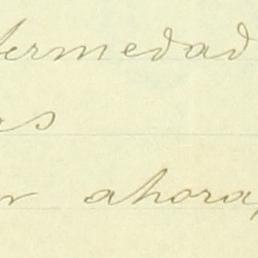 fermedad
as
r ahora,